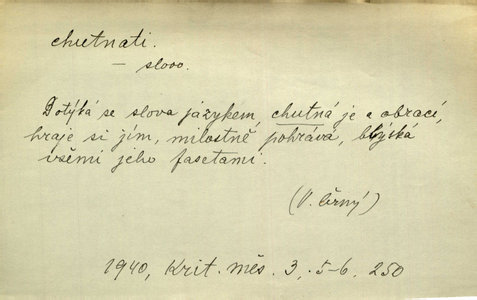 chutnati.
— slovo.
Dotýká se slova jázykem, chutná je a obrací,
hraje si jím, milostně pohrává, blýská
všemi jeho fasetami.
(V. Černý)
1940, Krit. měs. 3, 5-6, 250